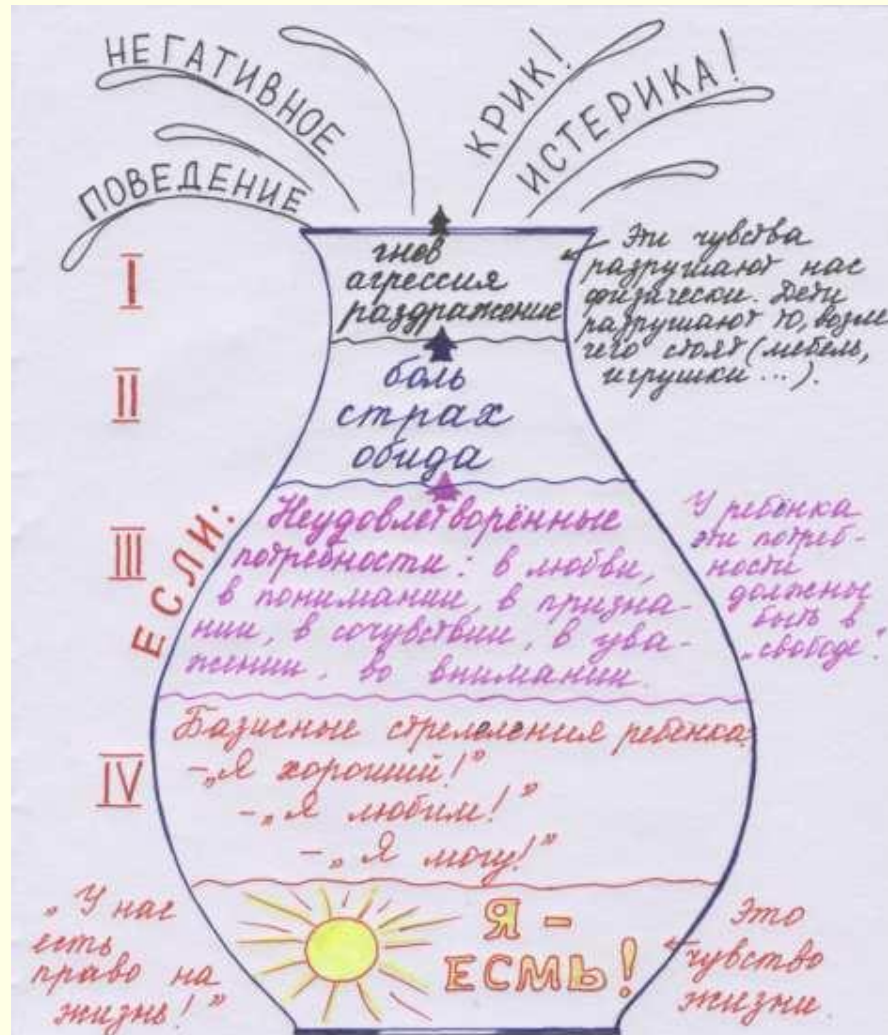 НЕГАТИВНОЕ
ПОВЕДЕНИЕ
КРИК!
ИСТЕРИКА!
I
гнев
агрессия
раздражение
Эти чувства
разрушают нас
физически. Дети
разрушают то, возле
чего стоят (мебель,
игрушки ...).
II
боль
страх
обида
ЕСЛИ:
III
Неудовлетворённые
потребности: в любви,
в понимании, в призна-
нии, в сочувствии, в ува-
жении, во внимании.
У ребёнка
эти потреб-
ности
должны
быть в
„свободе".
IV
Базисные стремления ребёнка:
-„Я хороший!"
-„Я любим!"
-„Я могу!"
„У нас
есть
право на
жизнь!"
Я -
ЕСМЬ!
Это
чувство
жизни.